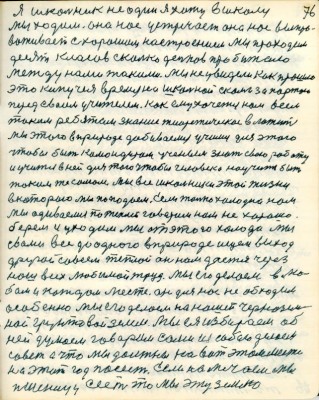 76
Я школник не один я хожу в школу
мы ходим. она нас встречает она нас выпро-
вожает с хорошим настроением мы проходим
десять класов сколко детков пробежало
между нами такими. мы не увидели как прошло
это кипучея время на школной скамье за партою
перед своим учителем. Как ему хочется нам всем
таким ребятам знание теоретическое вложить
мы этого в природе добиваемся учимся для этого
чтобы быт командиром ученым знат свою работу
и учится в ней для того чтобы человека научить быт
таким же самим. Мы все школники этой жизни
в которую мы попадаем. Если только холодно нам
мы одиваемся потеплей говорим нам не хорошо.
берем и уходим мы от этого холода мы
сами все до одного в природе ищем выход
другой совсем теплой он нам дастся через
наш всех любимой труд. Мы его делаем в лю-
бом и каждом месте. он для нас не обходим
особенно мы его делаем на нашей чернозем-
ной грунтовой земли. Мы ея избираем об
ней думаем говорим сами из собою делаем
совет а что мы должны на вот этом месте
на этот год посеят. Если намечаем мы
пшеницу сеет то мы эту землю